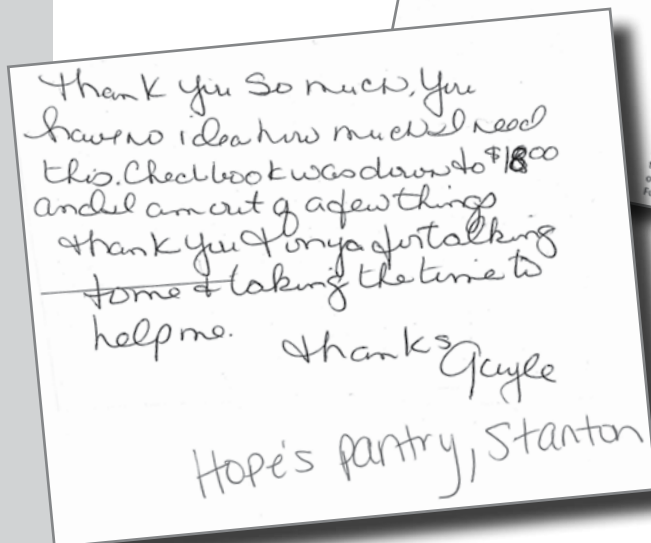 Thank you so much. You
have no idea how much I need
this. Checkbook was down to $18.00
and I am out of a few things
Thank you Tonya for talking
to me & taking the time to
help me.
Thanks
Gayle
Hope's pantry, Stanton